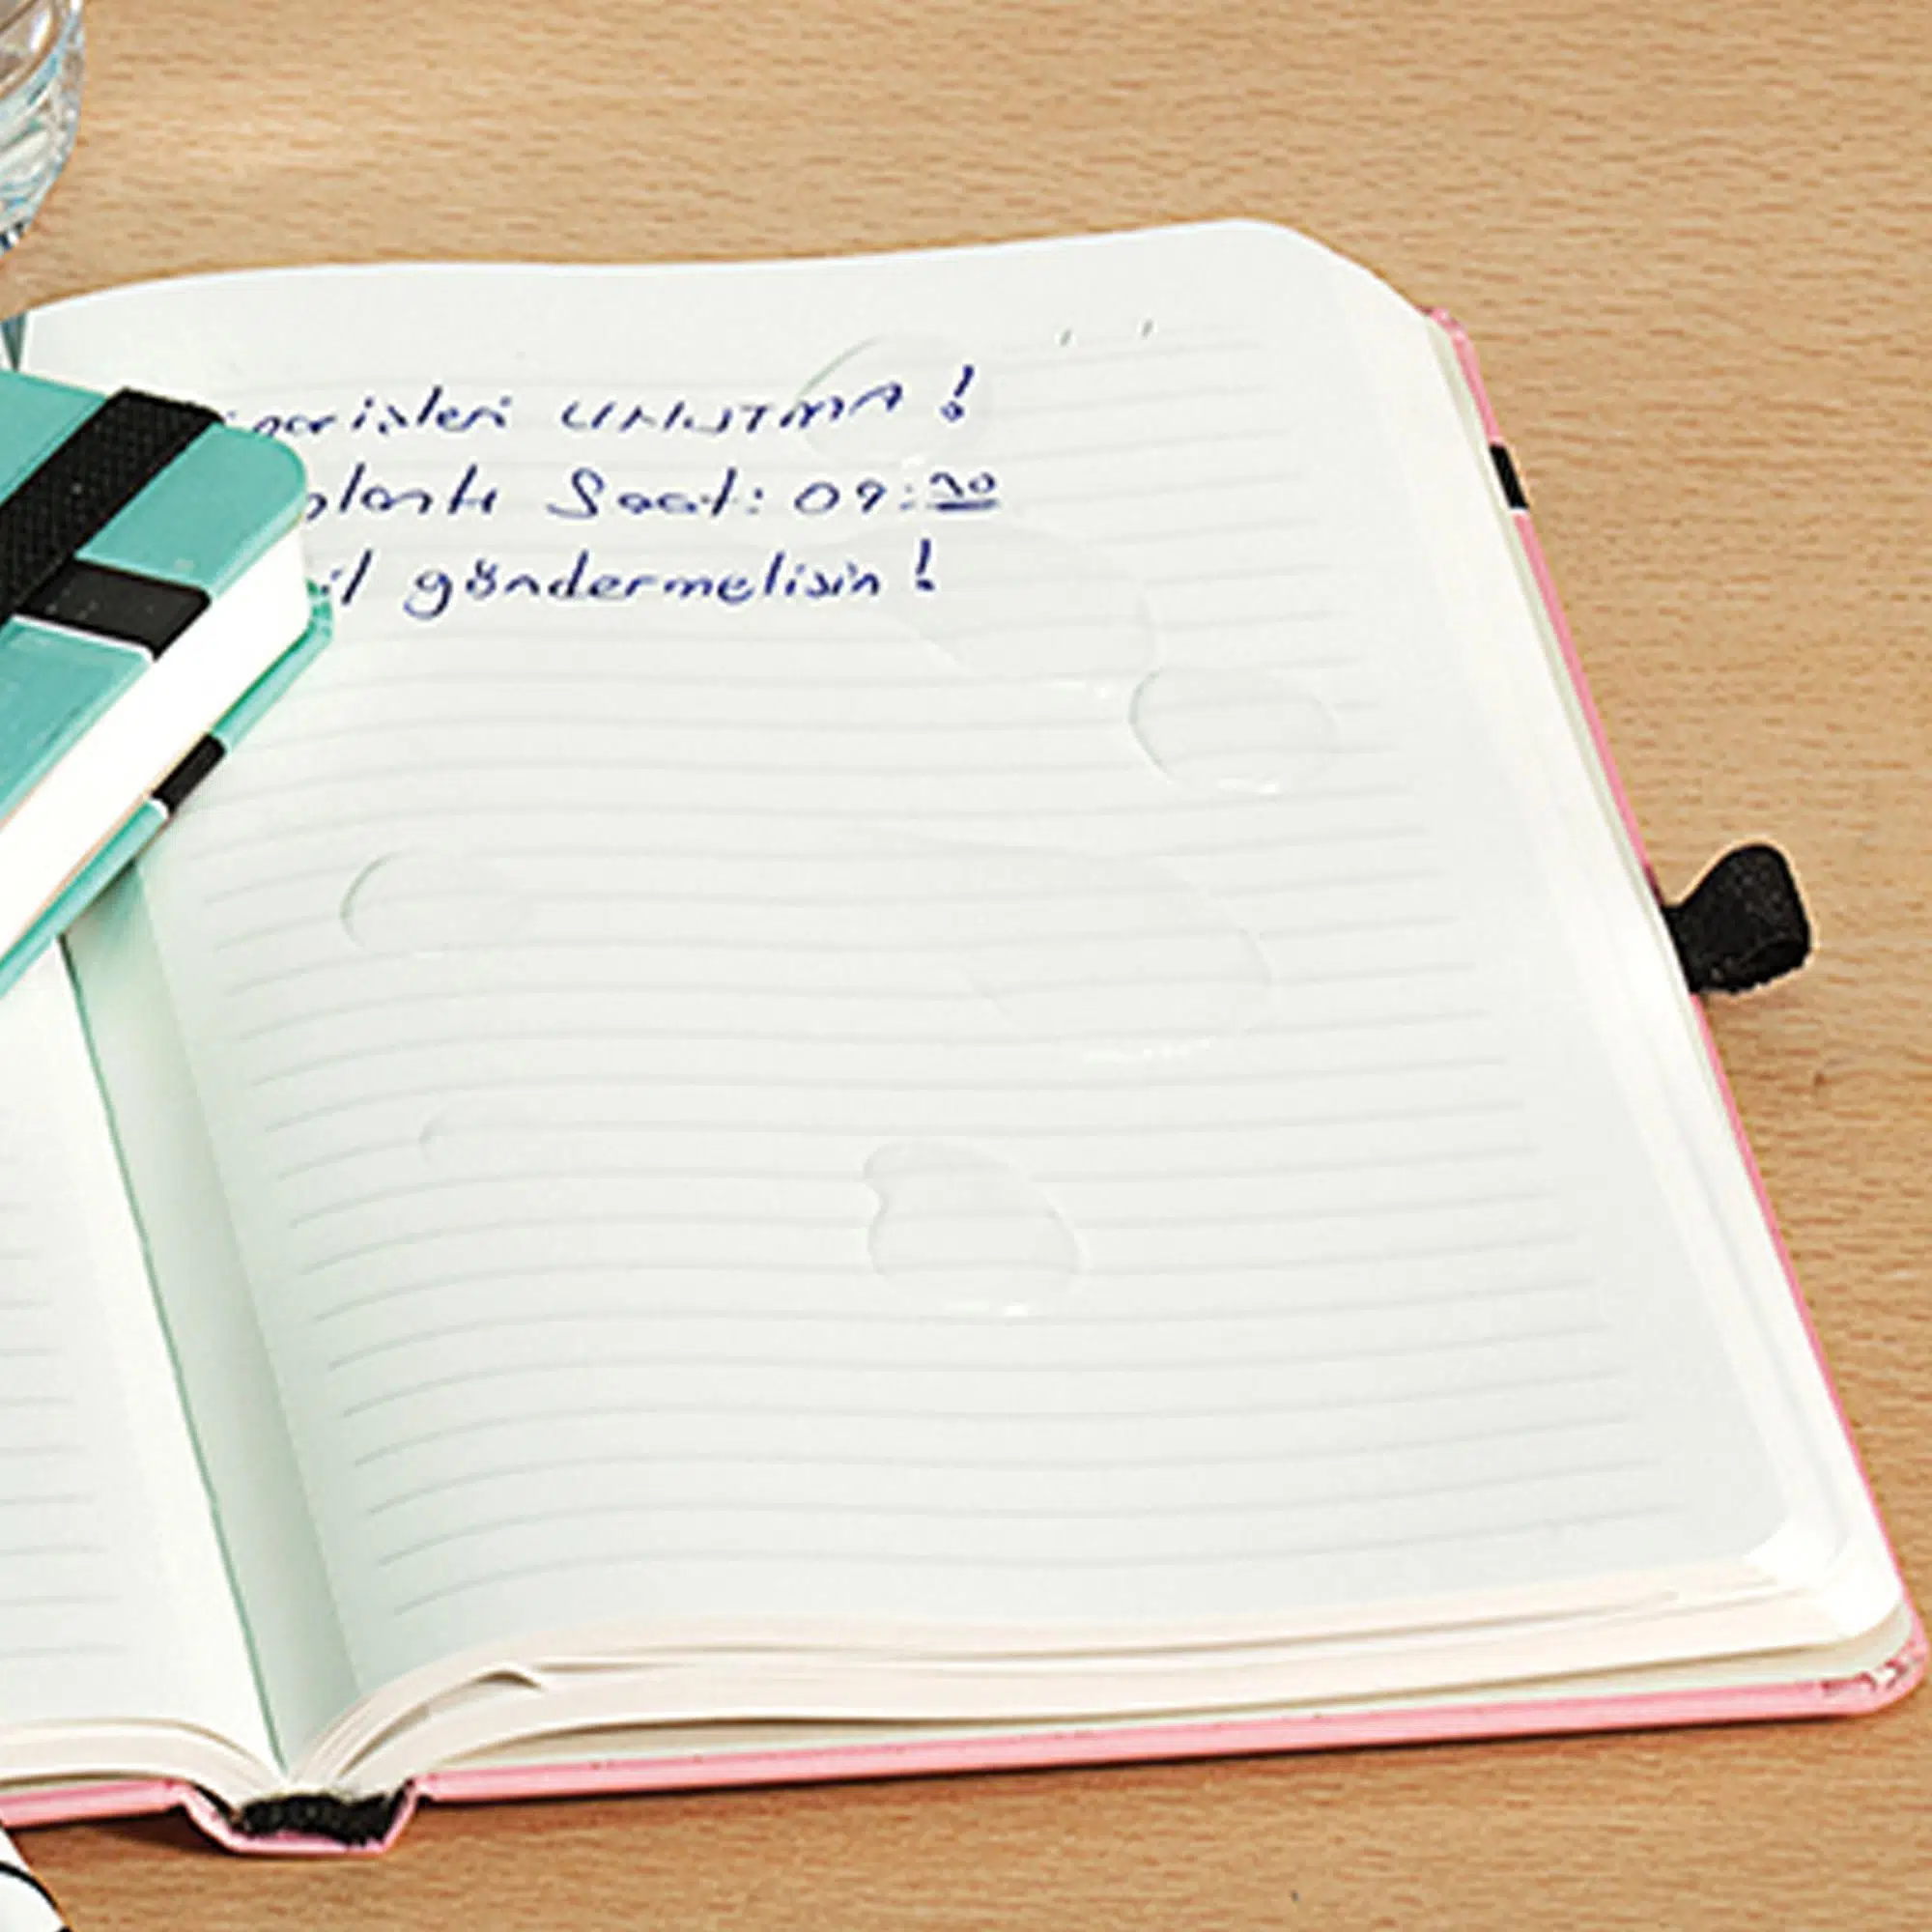 parişleri UNUTMA !
plantı Saat: 09:30
il göndermelisin !